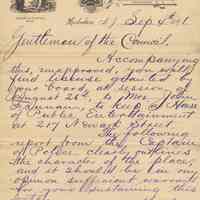 Hoboken, N.J. Sep 4, 1891
Gentlemen of the Council.
Accompanying
this, unapproved, you will
find license granted by
your board, at session of
August 26th to Mrs. John
to keep a House
of Public Entertainment
at 207 Newark Street
The following
report from the Captain
of Police clearly defines
the character of the place,
and it should be in my
opinion sufficient warrant
for your sustaining this